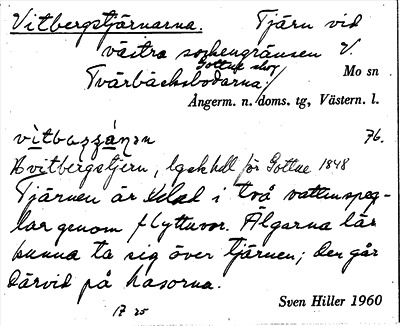 Vitbergstjärnarna. Tjärn vid
västra sockengränsen V.
Gottne skog
Tvärbäcksbodarna/ Mo sn
Ångerm. n. doms. tg, Västern. l.
76.
Hvitbergstjern, lgskhdl för Gottne 1848
Tjärnen är delad i två vattenspeg-
lar genom flyttuvor. Älgarna lär
kunna ta sig över tjärnen; den går
därvid på hasorna.
Sven Hiller 1960